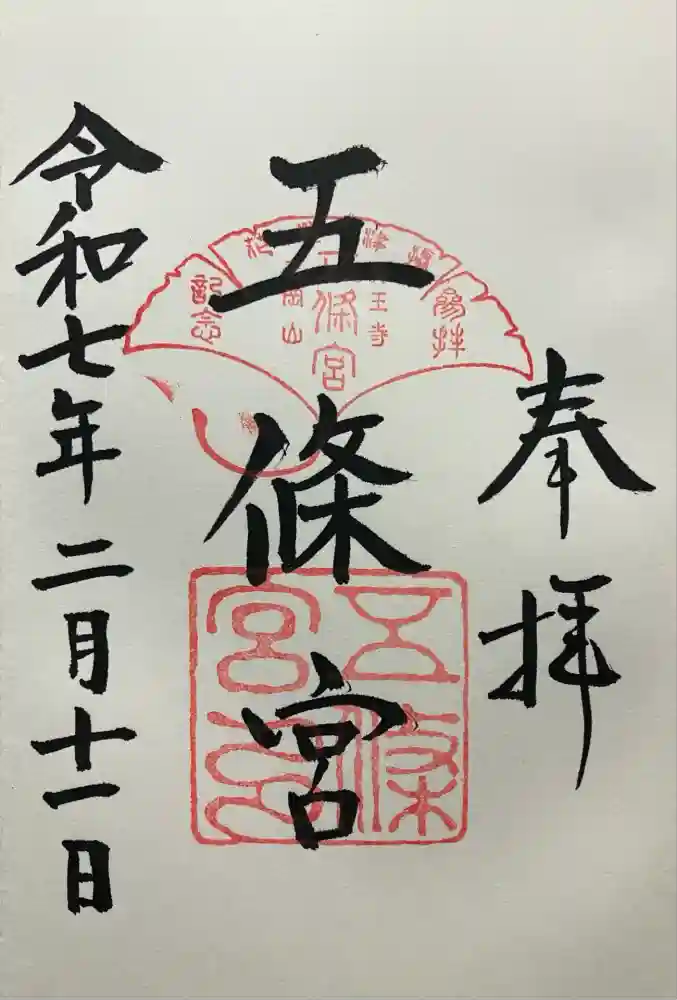 奉拝
参拝
摂津
王寺
五條宮
岡山
記念
五條宮
五條
宮印
令和七年二月十一日